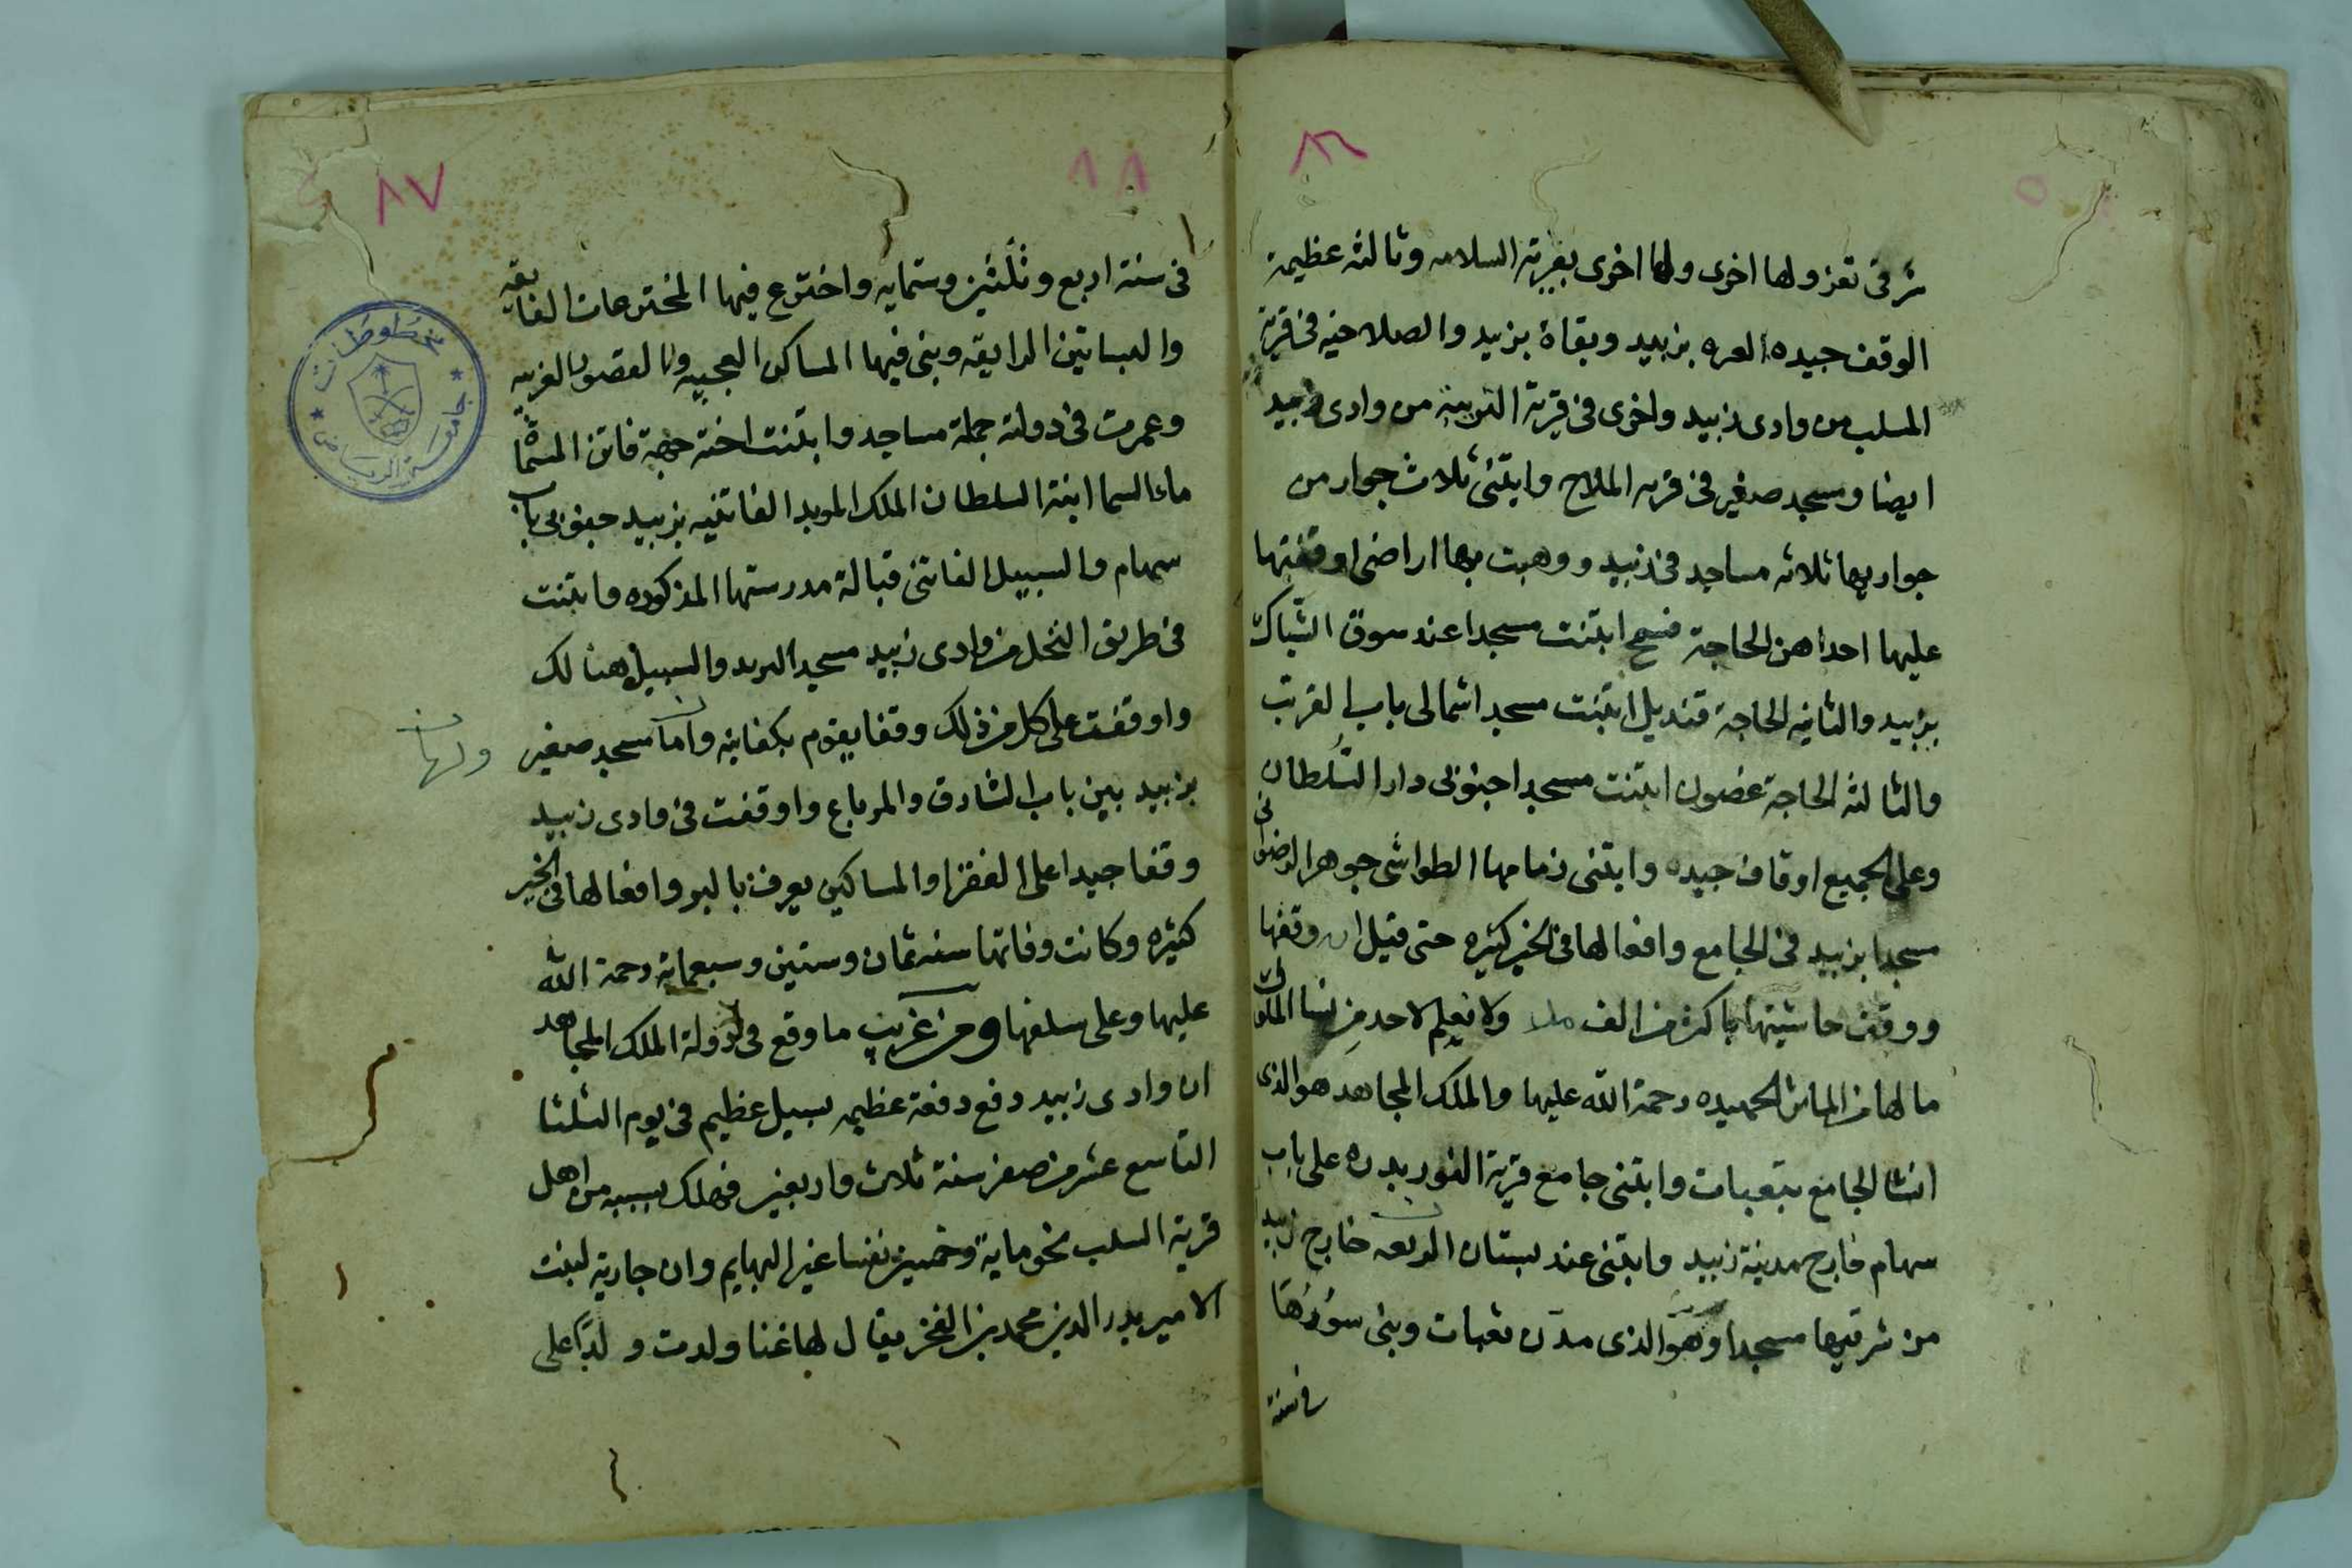 ٨٦
شرقى تعز ولها اخرى ولها اخرى بقرية السلامه وثالثه عظيمة
الوقف جيده العره بزبيد وبقاة بزبيد والصلاحيه فى قرية
المسلب من وادى زبيد واخرى فى قرية التريبة من وادى زبيد
ايضا ومسجد صغير فى قريه الملاح وابتنى ثلاث جوار من
جواريها ثلاثه مساجد فى زبيد ووهبت بها اراضى اوقفتها
عليها احداهن الحاجة ابتنت مسجدا عند سوق الشباك
بزبيد والثانيه الحاجة قنديل ابتنت مسجدا شمالى باب القرتب
والثالثه الحاجة غصون ابتنت مسجدا جنوبى دار السلطان
وعلى الجميع اوقاف جيده وابتنى زمامها الطواشى جوهر الرضوانى
مسجدا بزبيد فى الجامع وافعالها فى الخير كثيره حتى قيل ان وقفها
ووقف حاشيتها باكثر من الف ولا نعلم لاحد من نسا الملوك
مالها من الماثر الحميده رحمة الله عليها والملك المجاهد هو الذى
انشا الجامع بثعبات وابتنى جامع قرية النوريدره على باب
سهام خارج مدينة زبيد وابتنى عند بستان خارج زبيد
من شرقيها مسجدا وهو الذى مدّن ثعبات وبنى سورها
فى سنة
٨٧
فى سنة اربع وثلثين وستمايه واخترع فيها المخترعات الفايقه
والبساتين الرايقه وبنى فيها المساكن العجيبه والقصور الغريبه
وعمرت فى دولته جملة مساجد وابتنت اخته جهة فاتن المسما
ماء السما ابنة السلطان الملك المويد الفاتنيه بزبيد جنوبى باب
سهام والسبيل الفاتنى قبالة مدرستها المذكوره وابتنت
فى طريق النخل من وادى زبيد مسجد البرىد والسبيل هنالك
واوقفت على كل من ذلك وقفا يقوم بكفايته مسجد صغير
ولها
بزبيد بين باب الشارق والمرباع واوقفت فى وادى زبيد
وقفا جيدا على الفقرا والمساكين يعرف بالبر وافعالها فى الخير
كثيره وكانت وفاتها سنه ثمان وستين وسبعماية رحمة الله
عليها وعلى سلفها ومن غريب ما وقع فى دولة الملك المجاهد
ان وادى زبيد دفع دفعة عظيمه بسيل عظيم فى يوم الثلثا
التاسع عشر من صفر سنة ثلاث واربعين فهلك بسببه من اهل
قرية السلب نحو ماية وخمسين نفسا غير البهايم وان جارية لبنت
الامير بدر الدين محمد بن الفخر يقال لها غنا ولدت ولدًا على
مخطوطات
جامعة الرياض